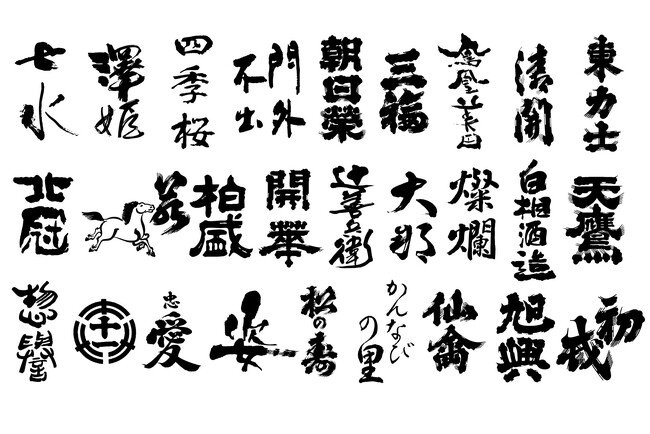 東力士
清開
鳳凰美田
三福
朝日榮
門外
不出
四季桜
澤姫
七水
天鷹
白相酒造
燦爛
大那
辻善兵衛
開華
柏盛
若
北冠
初戎
旭興
仙禽
かんなび
の里
松の寿
姿
忠愛
十一
惣譽